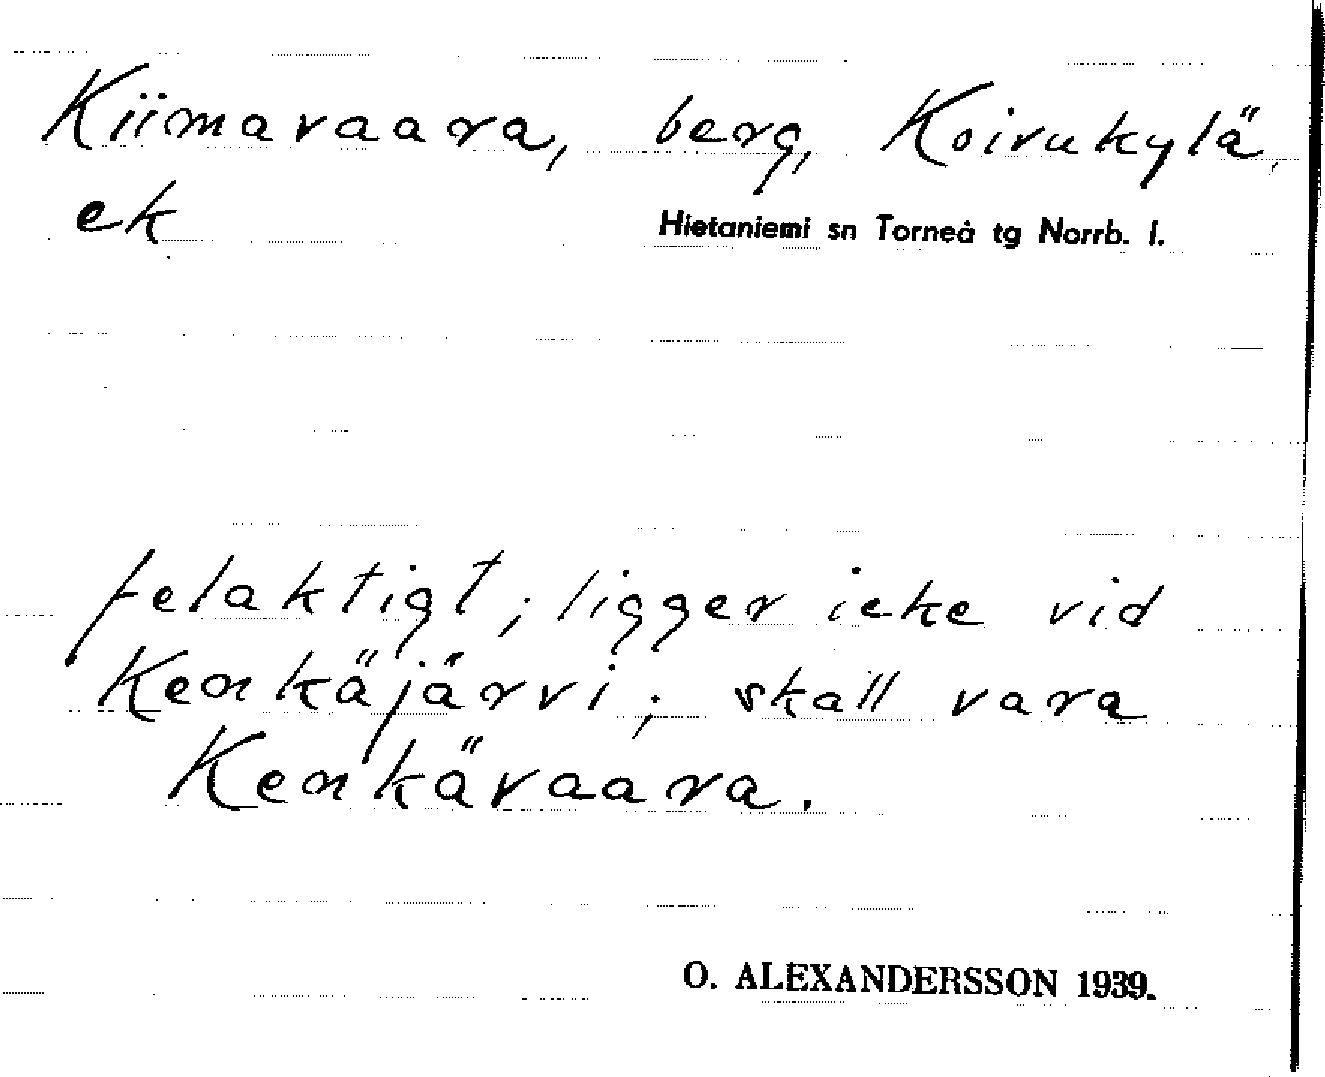 Kiimavaara, berg, Koivukylä,
ek
Hietaniemi sn Torneå tg Norrb. l.
felaktigt; ligger icke vid
Kenkäjärvi; skall vara
Kenkävaara.
O. ALEXANDERSSON 1939.